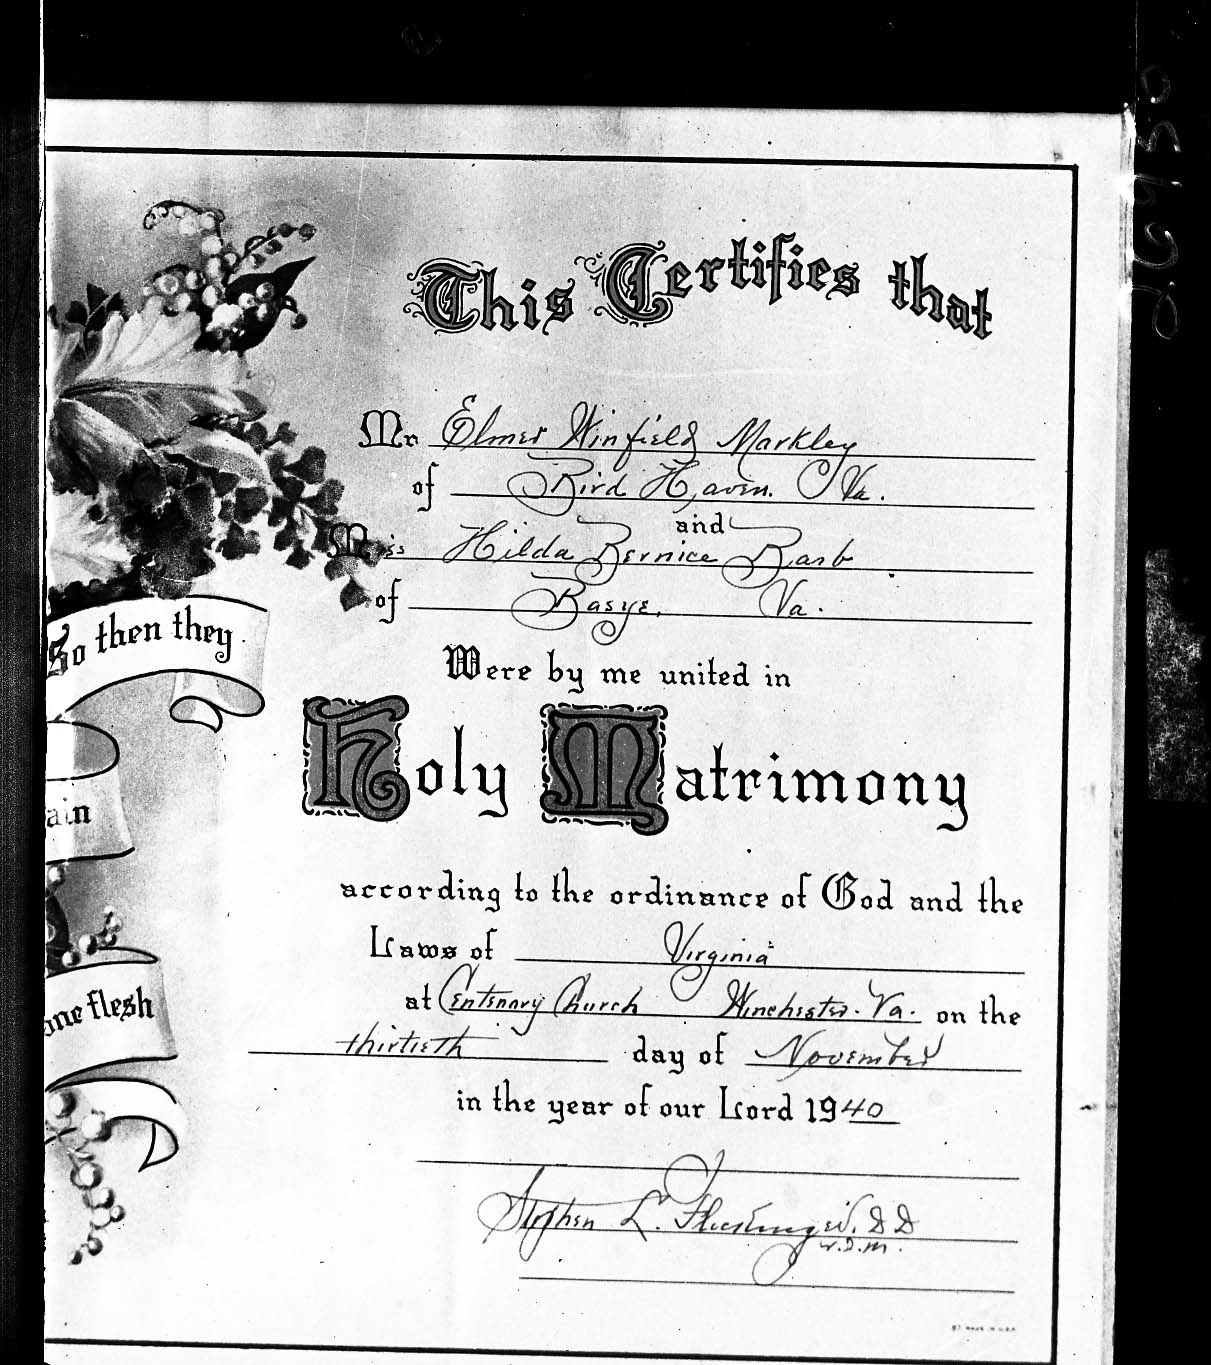 This Certifies that
Mr Elmer Winfield Markley
of Bird Haven. Va.
and
Miss Hilda Bernice Barb
of Basye, Va.
So then they
Were by me united in
Holy Matrimony
ain
according to the ordinance of God and the
Laws of Virginia
one flesh
at Centenary Church Winchester. Va. on the
thirtieth day of November
in the year of our Lord 1940
Stephen L. D D